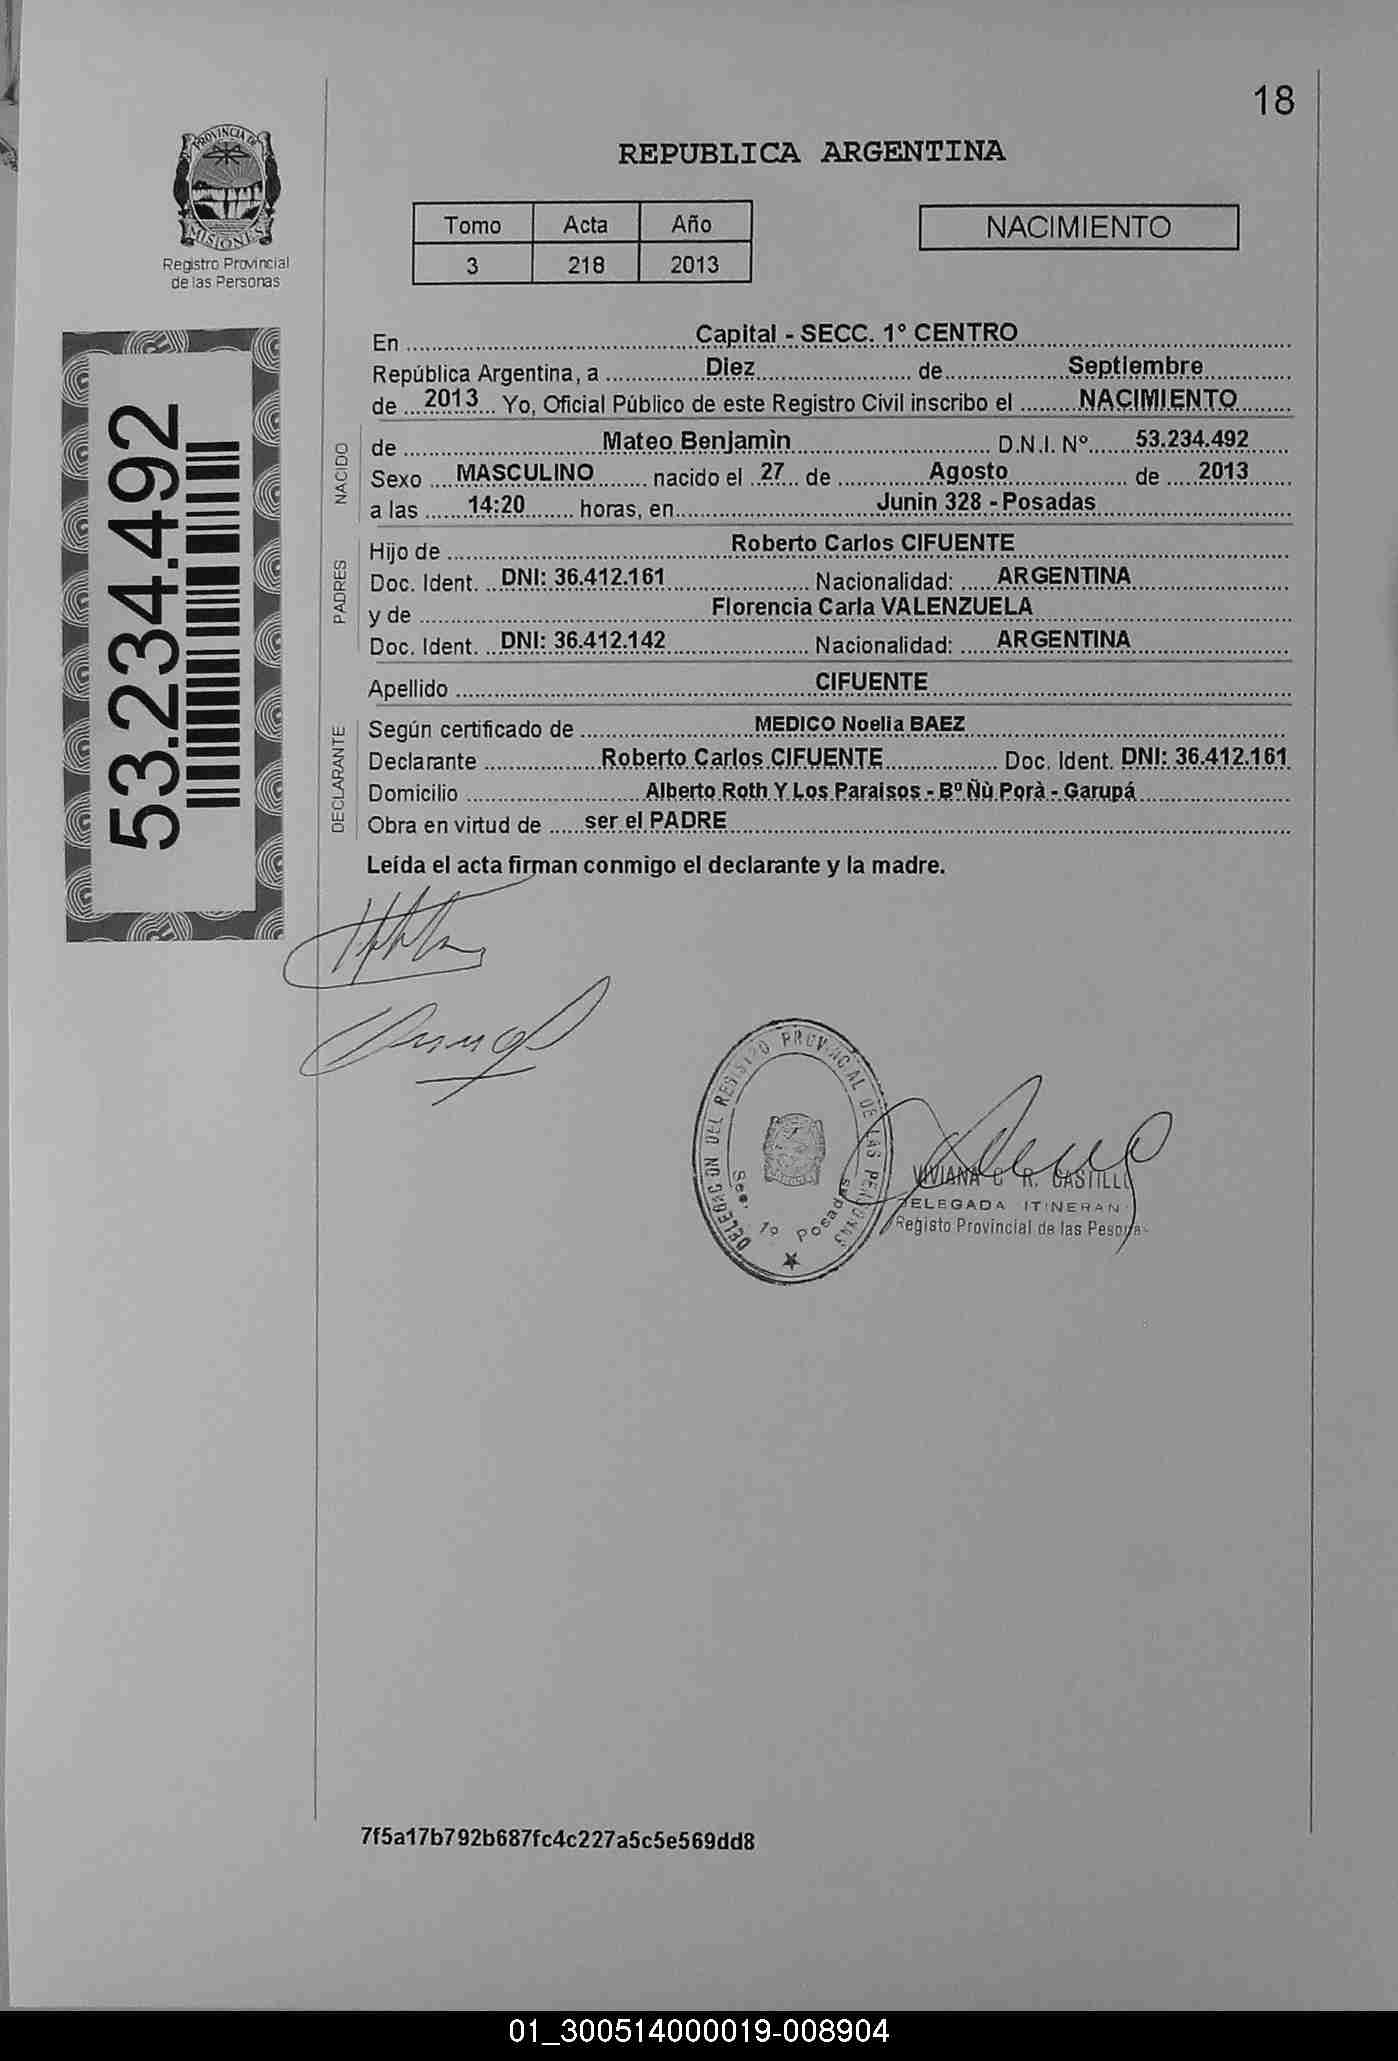 18
PROVINCIA DE
MISIONES
Registro Provincial
de las Personas
REPUBLICA ARGENTINA
Tomo Acta Año
3 218 2013
NACIMIENTO
53.234.492
En Capital - SECC. 1° CENTRO
República Argentina, a Diez de Septiembre
de 2013 Yo, Oficial Público de este Registro Civil inscribo el NACIMIENTO
NACIDO
de Mateo Benjamìn D.N.I. Nº 53.234.492
Sexo MASCULINO nacido el 27 de Agosto de 2013
a las 14:20 horas, en Junin 328 - Posadas
PADRES
Hijo de Roberto Carlos CIFUENTE
Doc. Ident. DNI: 36.412.161 Nacionalidad: ARGENTINA
y de Florencia Carla VALENZUELA
Doc. Ident. DNI: 36.412.142 Nacionalidad: ARGENTINA
Apellido CIFUENTE
DECLARANTE
Según certificado de MEDICO Noelia BAEZ
Declarante Roberto Carlos CIFUENTE Doc. Ident. DNI: 36.412.161
Domicilio Alberto Roth Y Los Paraisos - Bº Ñù Porà - Garupá
Obra en virtud de ser el PADRE
Leída el acta firman conmigo el declarante y la madre.
DELEGACION DEL REGISTRO PROVINCIAL DE LAS PERSONAS
Sec. 1º Posadas
VIVIANA C R. CASTILLO
DELEGADA ITINERAN
Registo Provincial de las Pesona
7f5a17b792b687fc4c227a5c5e569dd8
01_300514000019-008904